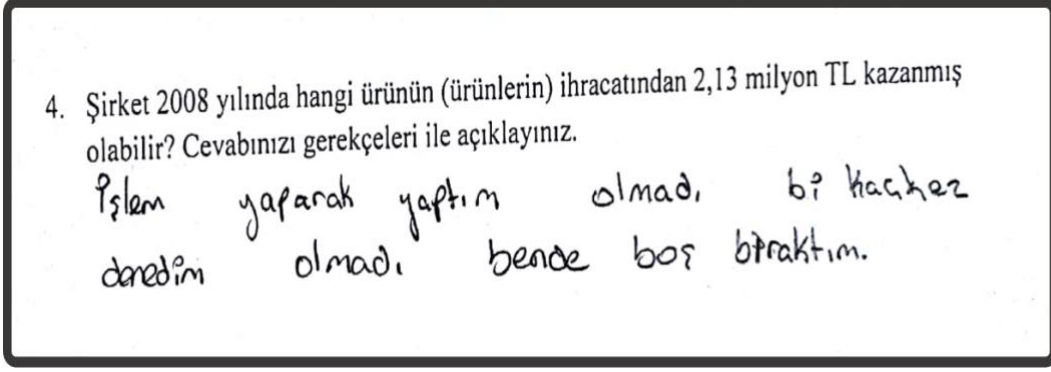 4. Şirket 2008 yılında hangi ürünün (ürünlerin) ihracatından 2,13 milyon TL kazanmış
olabilir? Cevabınızı gerekçeleri ile açıklayınız.
İşlem yaparak yaptım olmadı bi kaçkez
denedim olmadı bende boş bıraktım.